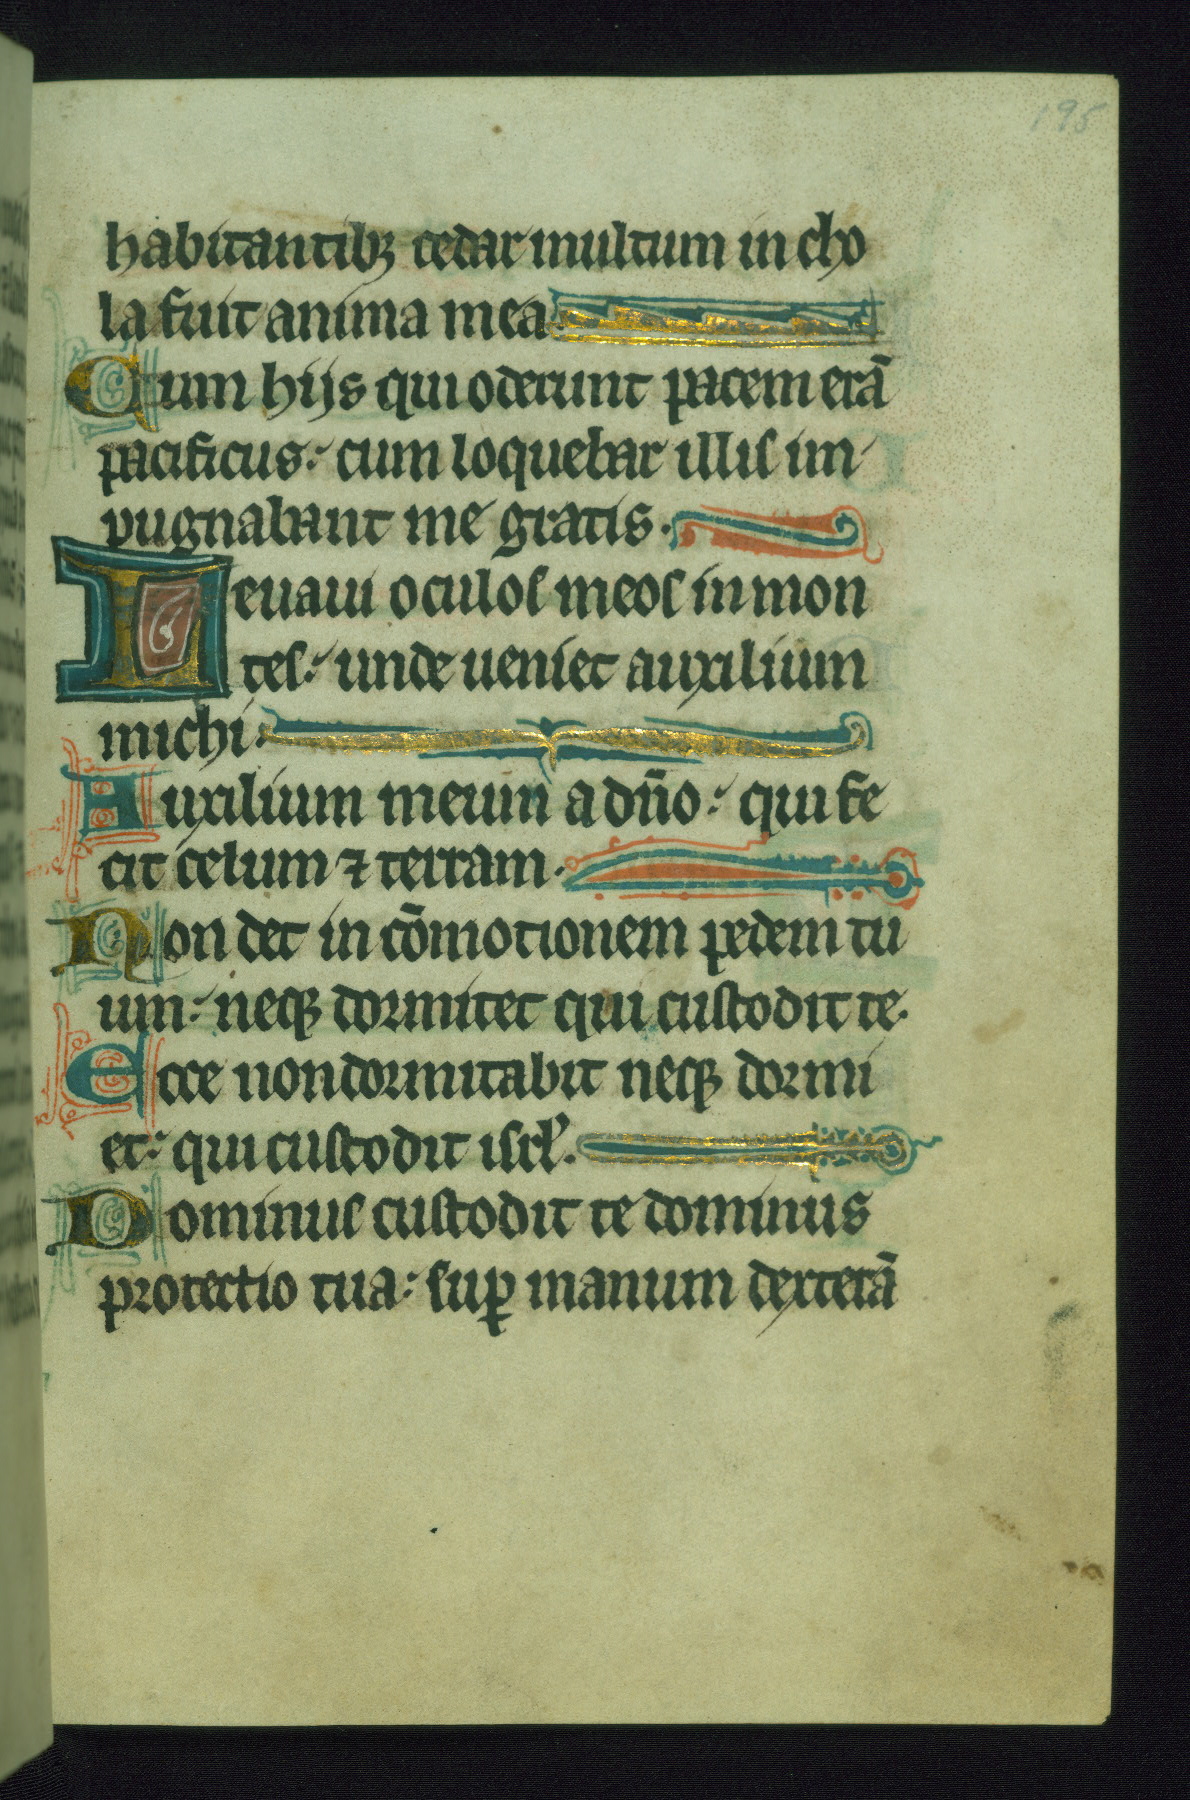 195
habitantibꝫ cedar multum in cho
la fuit anima mea
Cum hijs qui oderunt pacem erā
pacificus: cum loquebar illis im
pugnabant me gratis.
Leuaui oculos meos in mon
tes: unde ueniet auxilium
michi.
Auxilium meum a dn̄o: qui fe
cit celum ⁊ terram.
Non det in cōmotionem pedem tu
um: neqꝫ dormitet qui custodit te.
Ecce non dormitabit neqꝫ dormi
et: qui custodit isrl̕.
Dominus custodit te dominus
protectio tua: suꝑ manum dexterā